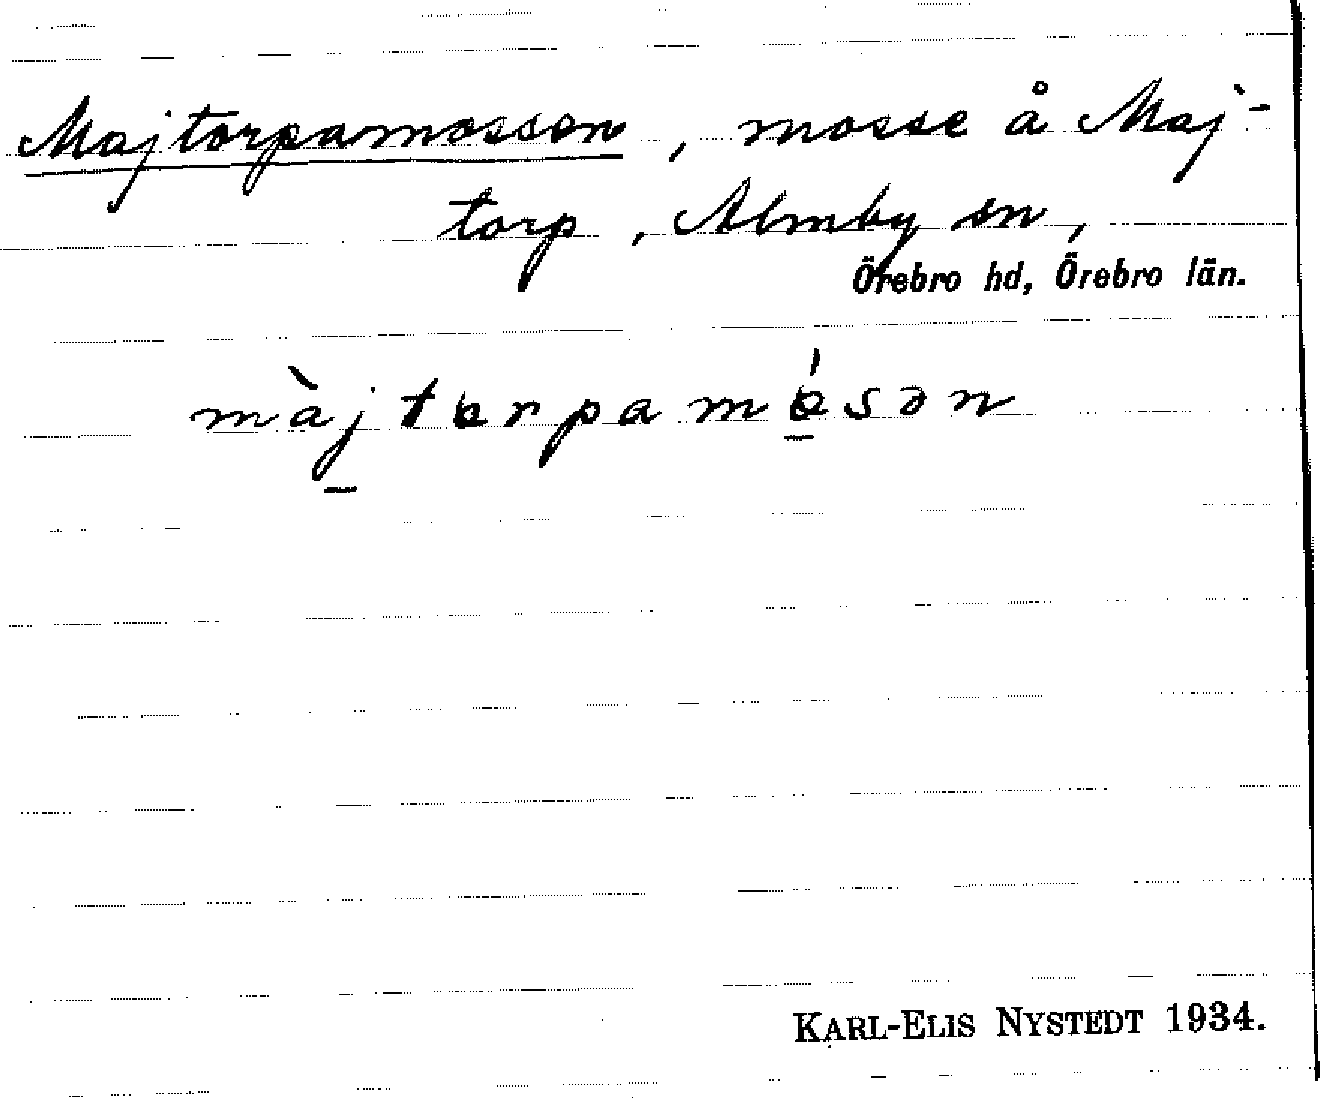 Majtorpamossen, mosse å Maj-
torp, Almby sn,
Örebro hd, Örebro län.
màjtorpamósən
KARL-ELIS NYSTEDT 1934.